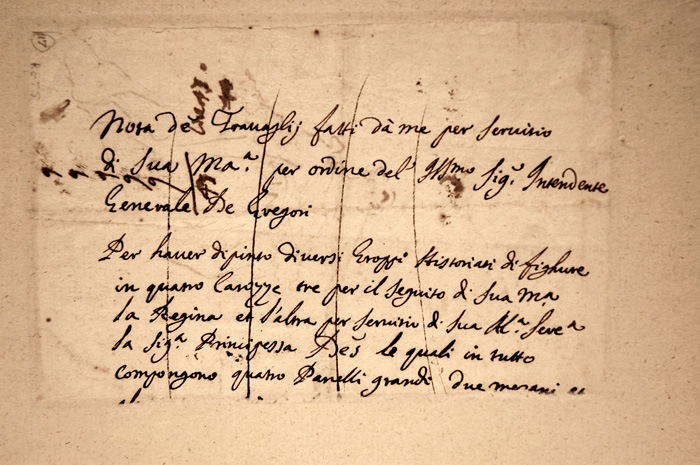 Nota de Travaglij fatti dà me per servitio
di Sua Ma.ª per ordine del Illmo Sig.º Intendente
Generale De Gregori
Per haver dipinto diversi Groppi Historiati di fighure
in quatro Carozze tre per il seguito di sua Ma
la Regina et l'altra per servitio di sua Al.ª Sere.ª
la Sig.ª Principessa le quali in tutto
compongono quatro Panelli grandi due mezani et